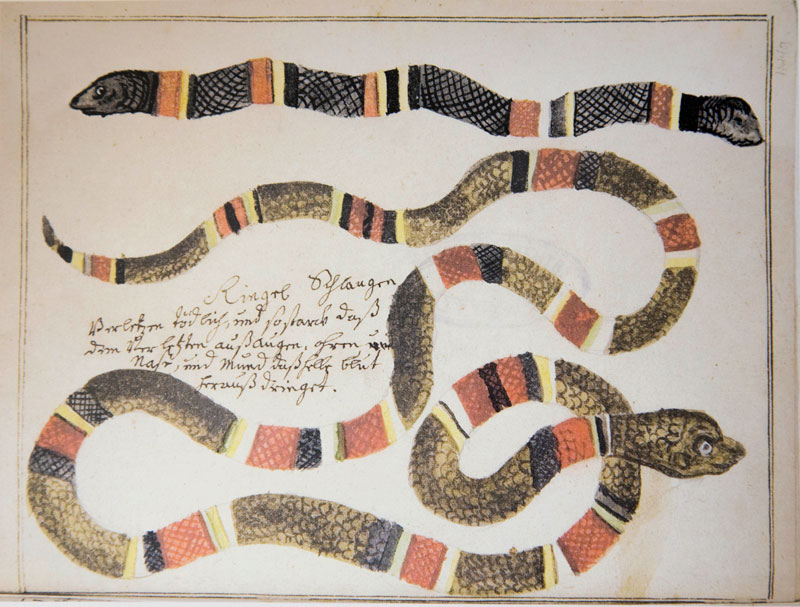 Ringel Schlangen
Verletzen tödlich, und so starck daß
dem Verletzten auß augen, ohren und
Nase, und Mund daß helle blut
herauß dringet.